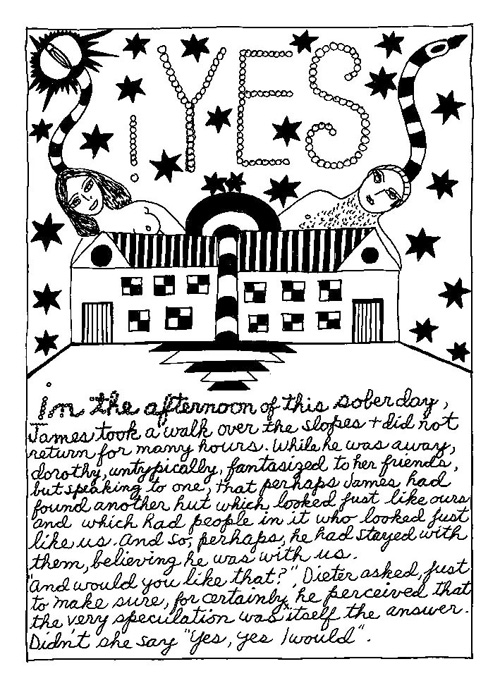 ¡YES
in the afternoon of this sober day,
James took a walk over the slopes + did not
return for many hours. While he was away,
dorothy, untypically, fantasized to her friends,
but speaking to one, that perhaps James had
found another hut which looked just like ours
and which had people in it who looked just
like us. And so, perhaps, he had stayed with
them, believing he was with us.
"And would you like that?", Dieter asked, just
to make sure, for certainly he perceived that
the very speculation was itself the answer.
Didn't she say "Yes, yes I would".